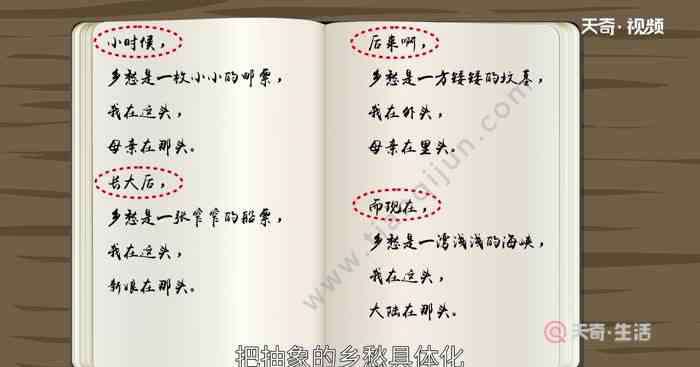 天奇·视频
小时候，
乡愁是一枚小小的邮票，
我在这头，
母亲在那头。
长大后，
乡愁是一张窄窄的船票，
我在这头，
新娘在那头。
后来啊，
乡愁是一方矮矮的坟墓，
我在外头，
母亲在里头。
而现在，
乡愁是一湾浅浅的海峡，
我在这头，
大陆在那头。
www.tianqijun.com
天奇·生活
把抽象的乡愁具体化